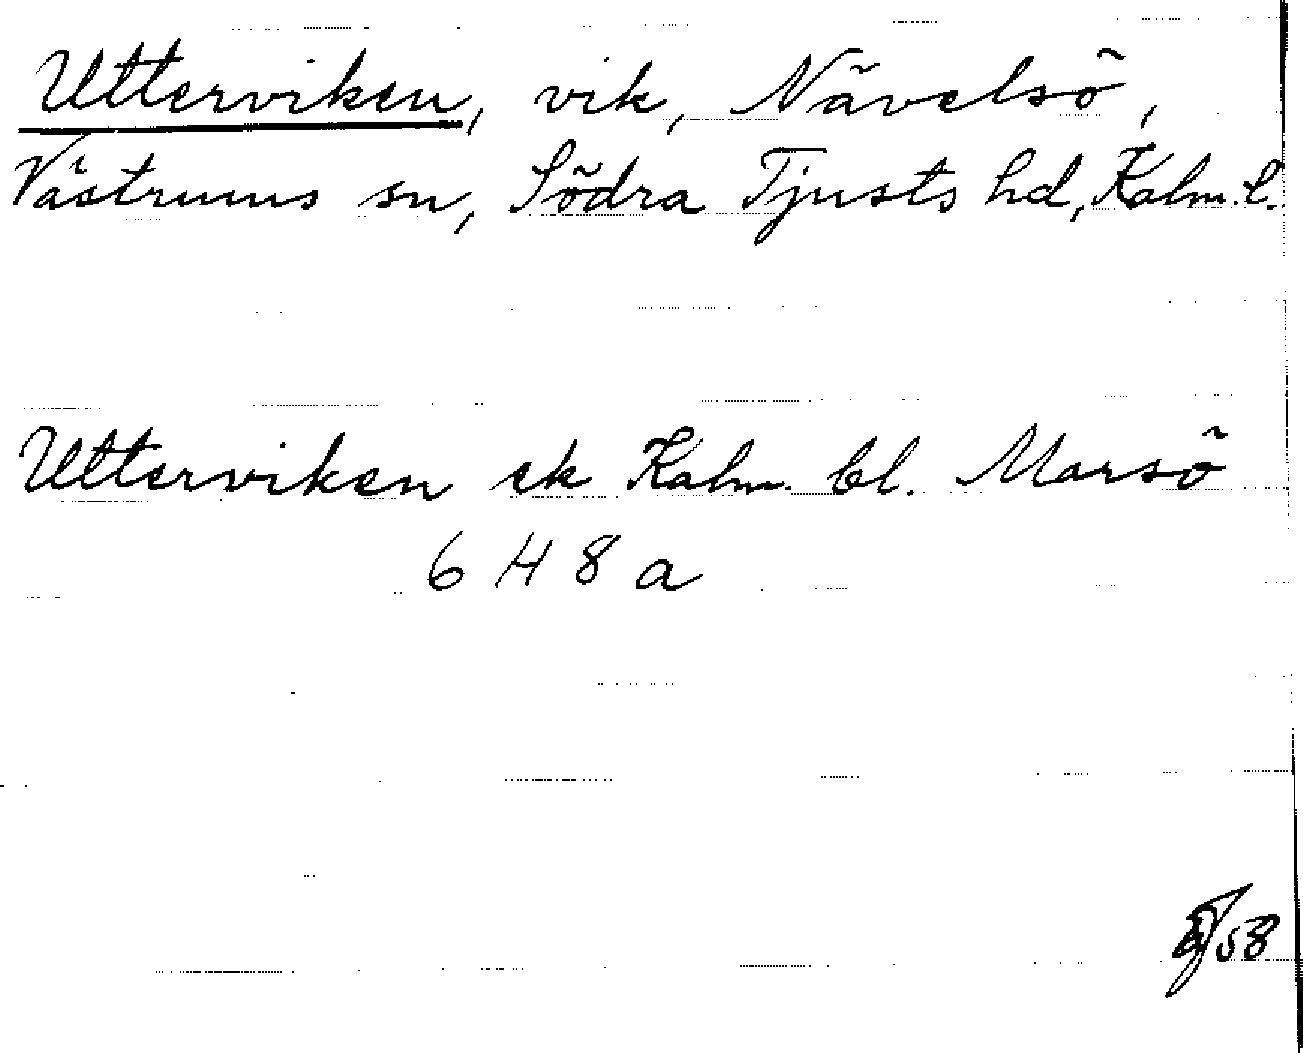 Utterviken, vik, Nävelsö,
Västrums sn, Södra Tjusts hd, Kalm. l.
Utterviken ek Kalm. bl. Marsö
6 H 8 a
58